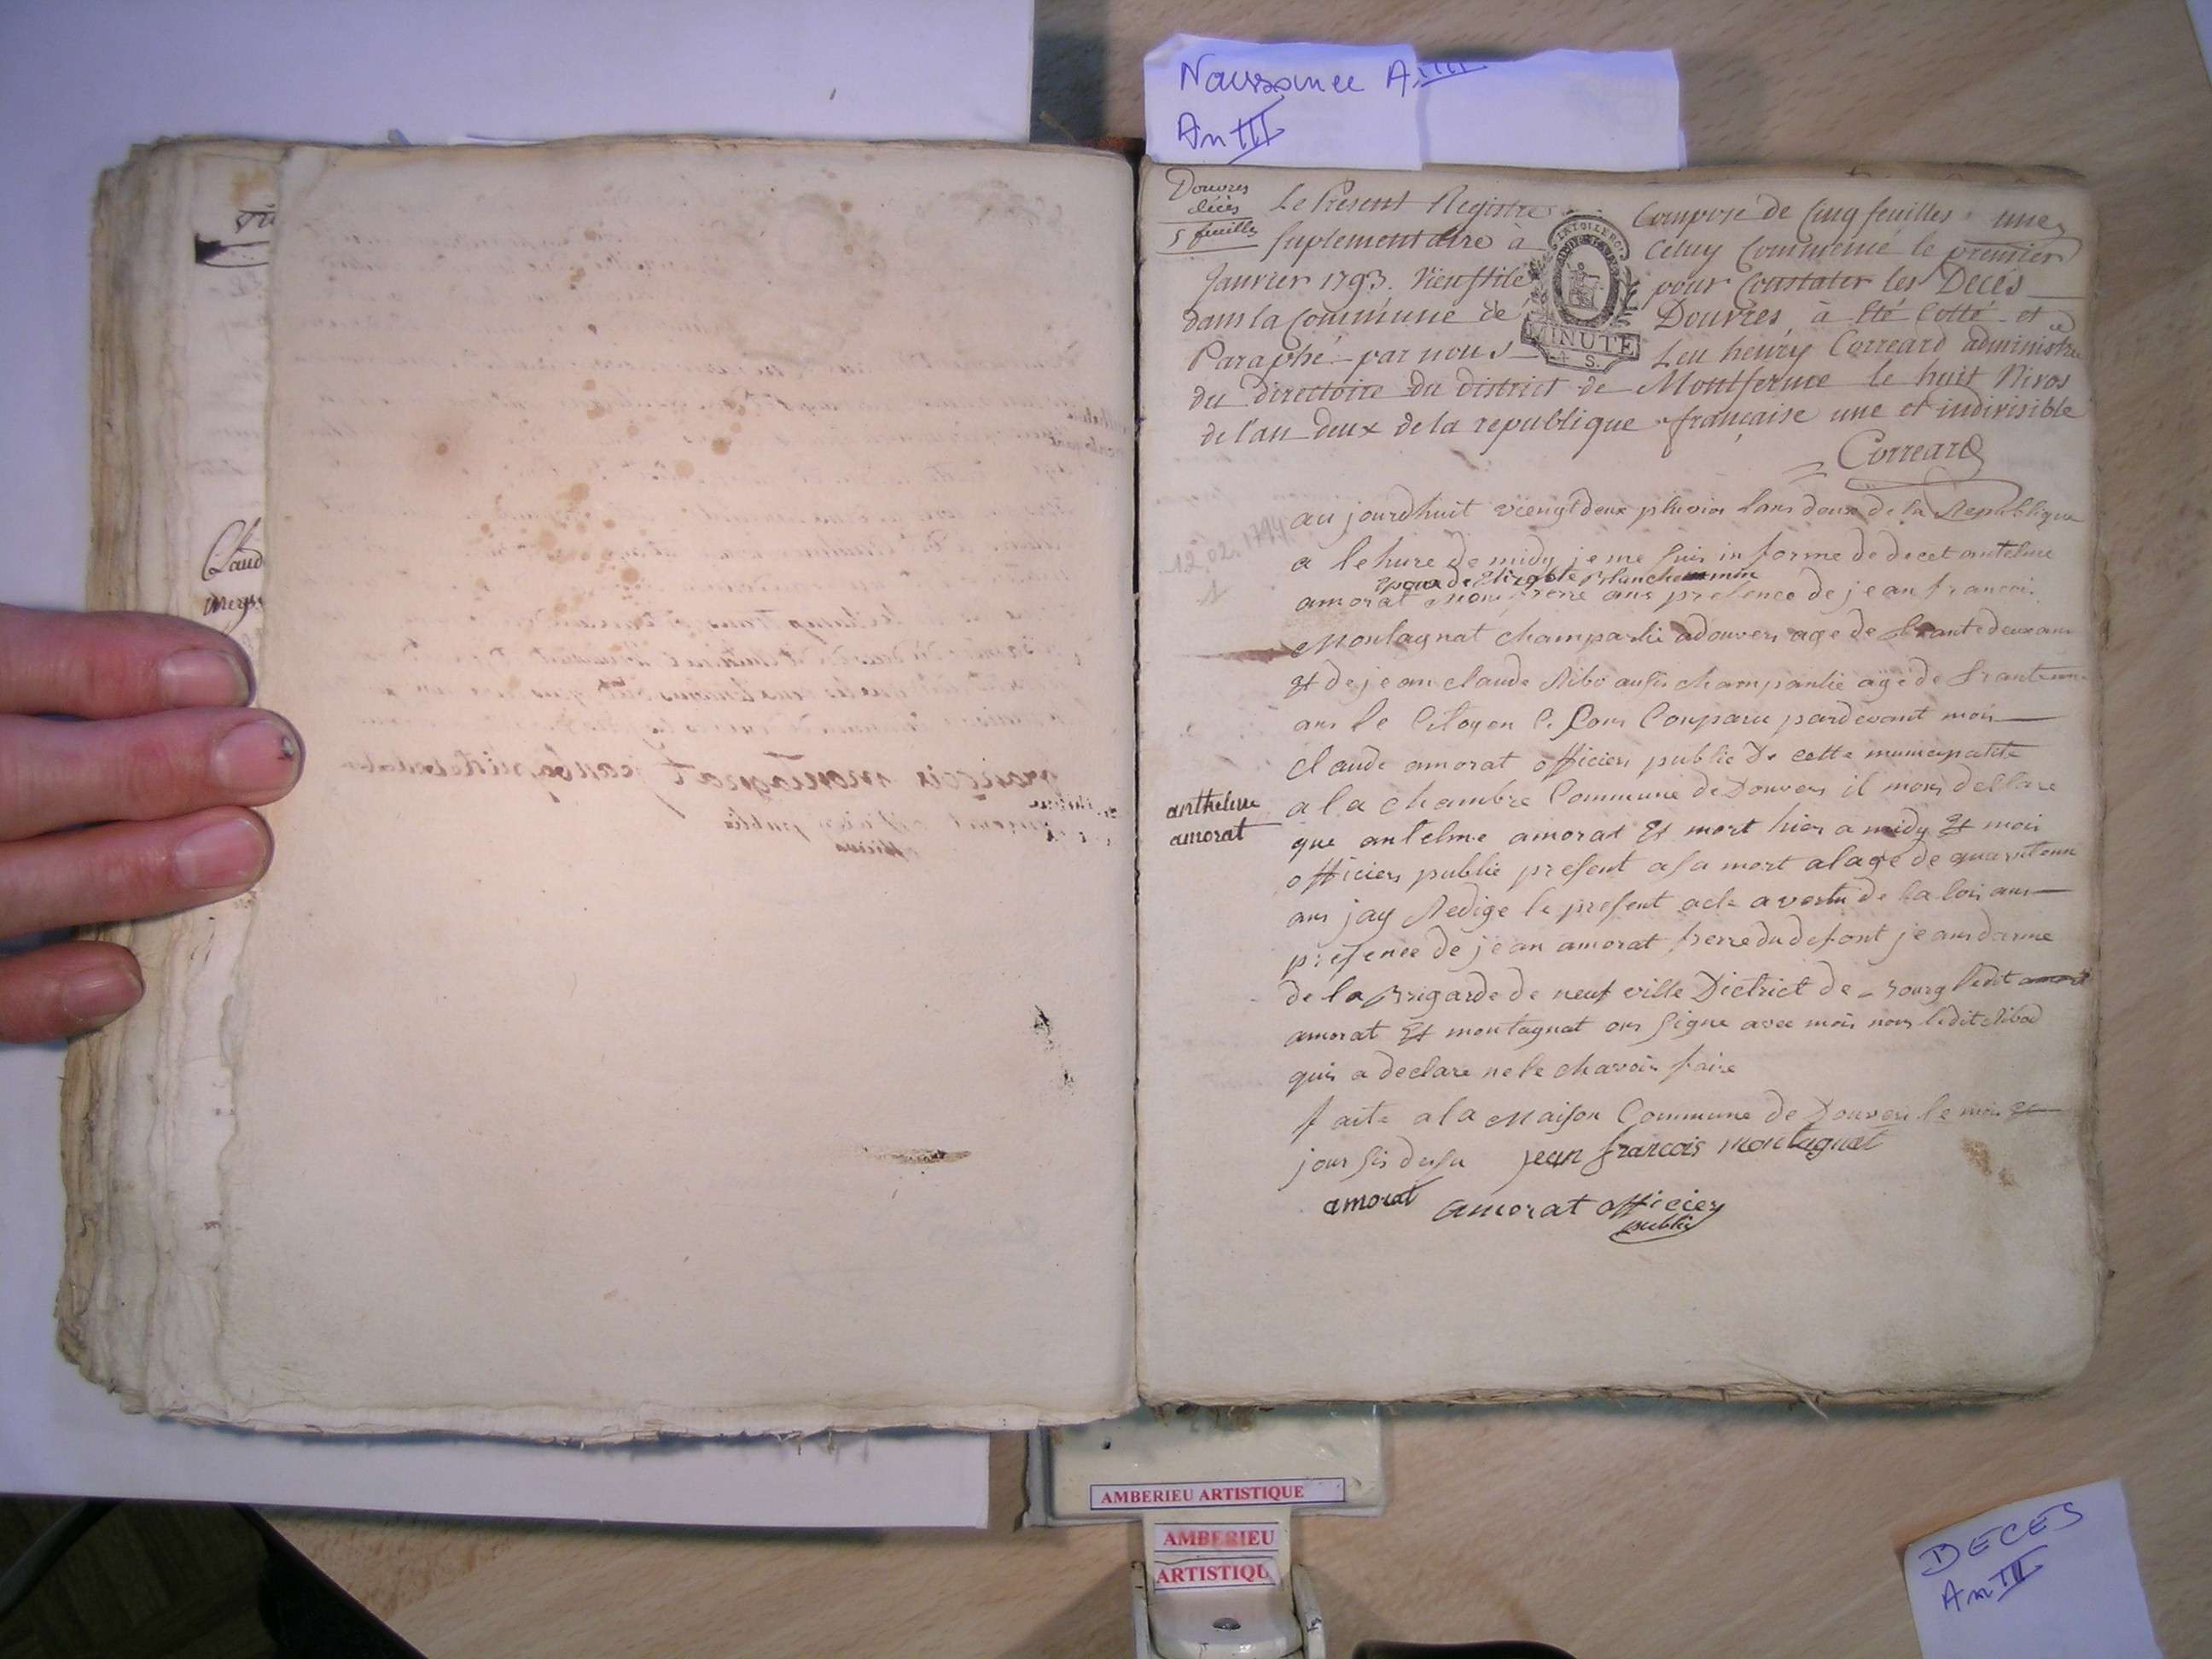 Naissance A IIII
An III
Douvres
décès
5 feuilles
Le Présent Registre Composé de Cinq feuilles une
suplementaire à Celuy Commencé le premier
Janvier 1793. Vieustile pour Constater les Décès
dans la Commune de Douvres, à été Cotté et
Paraphé par nous Leu henry Correard administr
du directoire du district de Montferme le huit Nivos
de l'an deux de la republique française une et indivisible
Correard
12.02.1794
1
au jourdhuit viengtdeux pluvios lans deux de la Republique
a lehure de midy je me suis in forme de decet antelme
epoux de
amorat mon frere ans presence de jean francois
Montagnat champartie adouvers age de trantedeux ans
et de jean claude Ribo ausis champantie agé de trante
ans le Citoyen Conparu pardevant mois
claude amorat officier public de cette municipalite
anthelme
amorat
a la chambre Commune de Douvers il mons dellare
que antelme amorat Et mort hier a midy Et mois
officiers public present a sa mort alage de quarntenn
ans jay Redige le present acte avertu de la lois ans
presence de jean amorat frere du defont jeansdarme
de la Brigarde de neuf ville Dictrict de Bourg ledit
amorat Et montagnat ons signe avec mois nons ledit Ribod
quis a declare ne le chavoir faire
faite a la Maison Commune de Douvers le mois et
jour sis desu jean francois montagnat
amorat amorat officier
public
Claud
AMBERIEU ARTISTIQUE
AMBERIEU
ARTISTIQU
DECES
An III